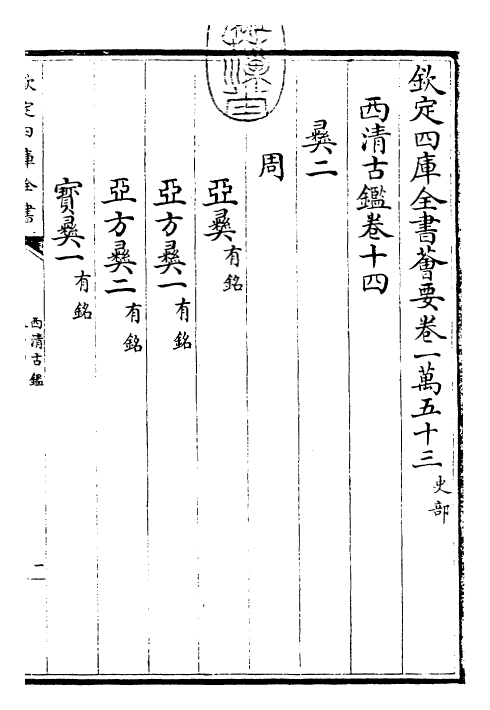 欽定四庫全書薈要卷一萬五十三 史部
西清古鑑卷十四
彞二
周
亞彞有銘
亞方彞一有銘
亞方彞二有銘
寳彞一有銘
欽定四庫全書
西清古鑑